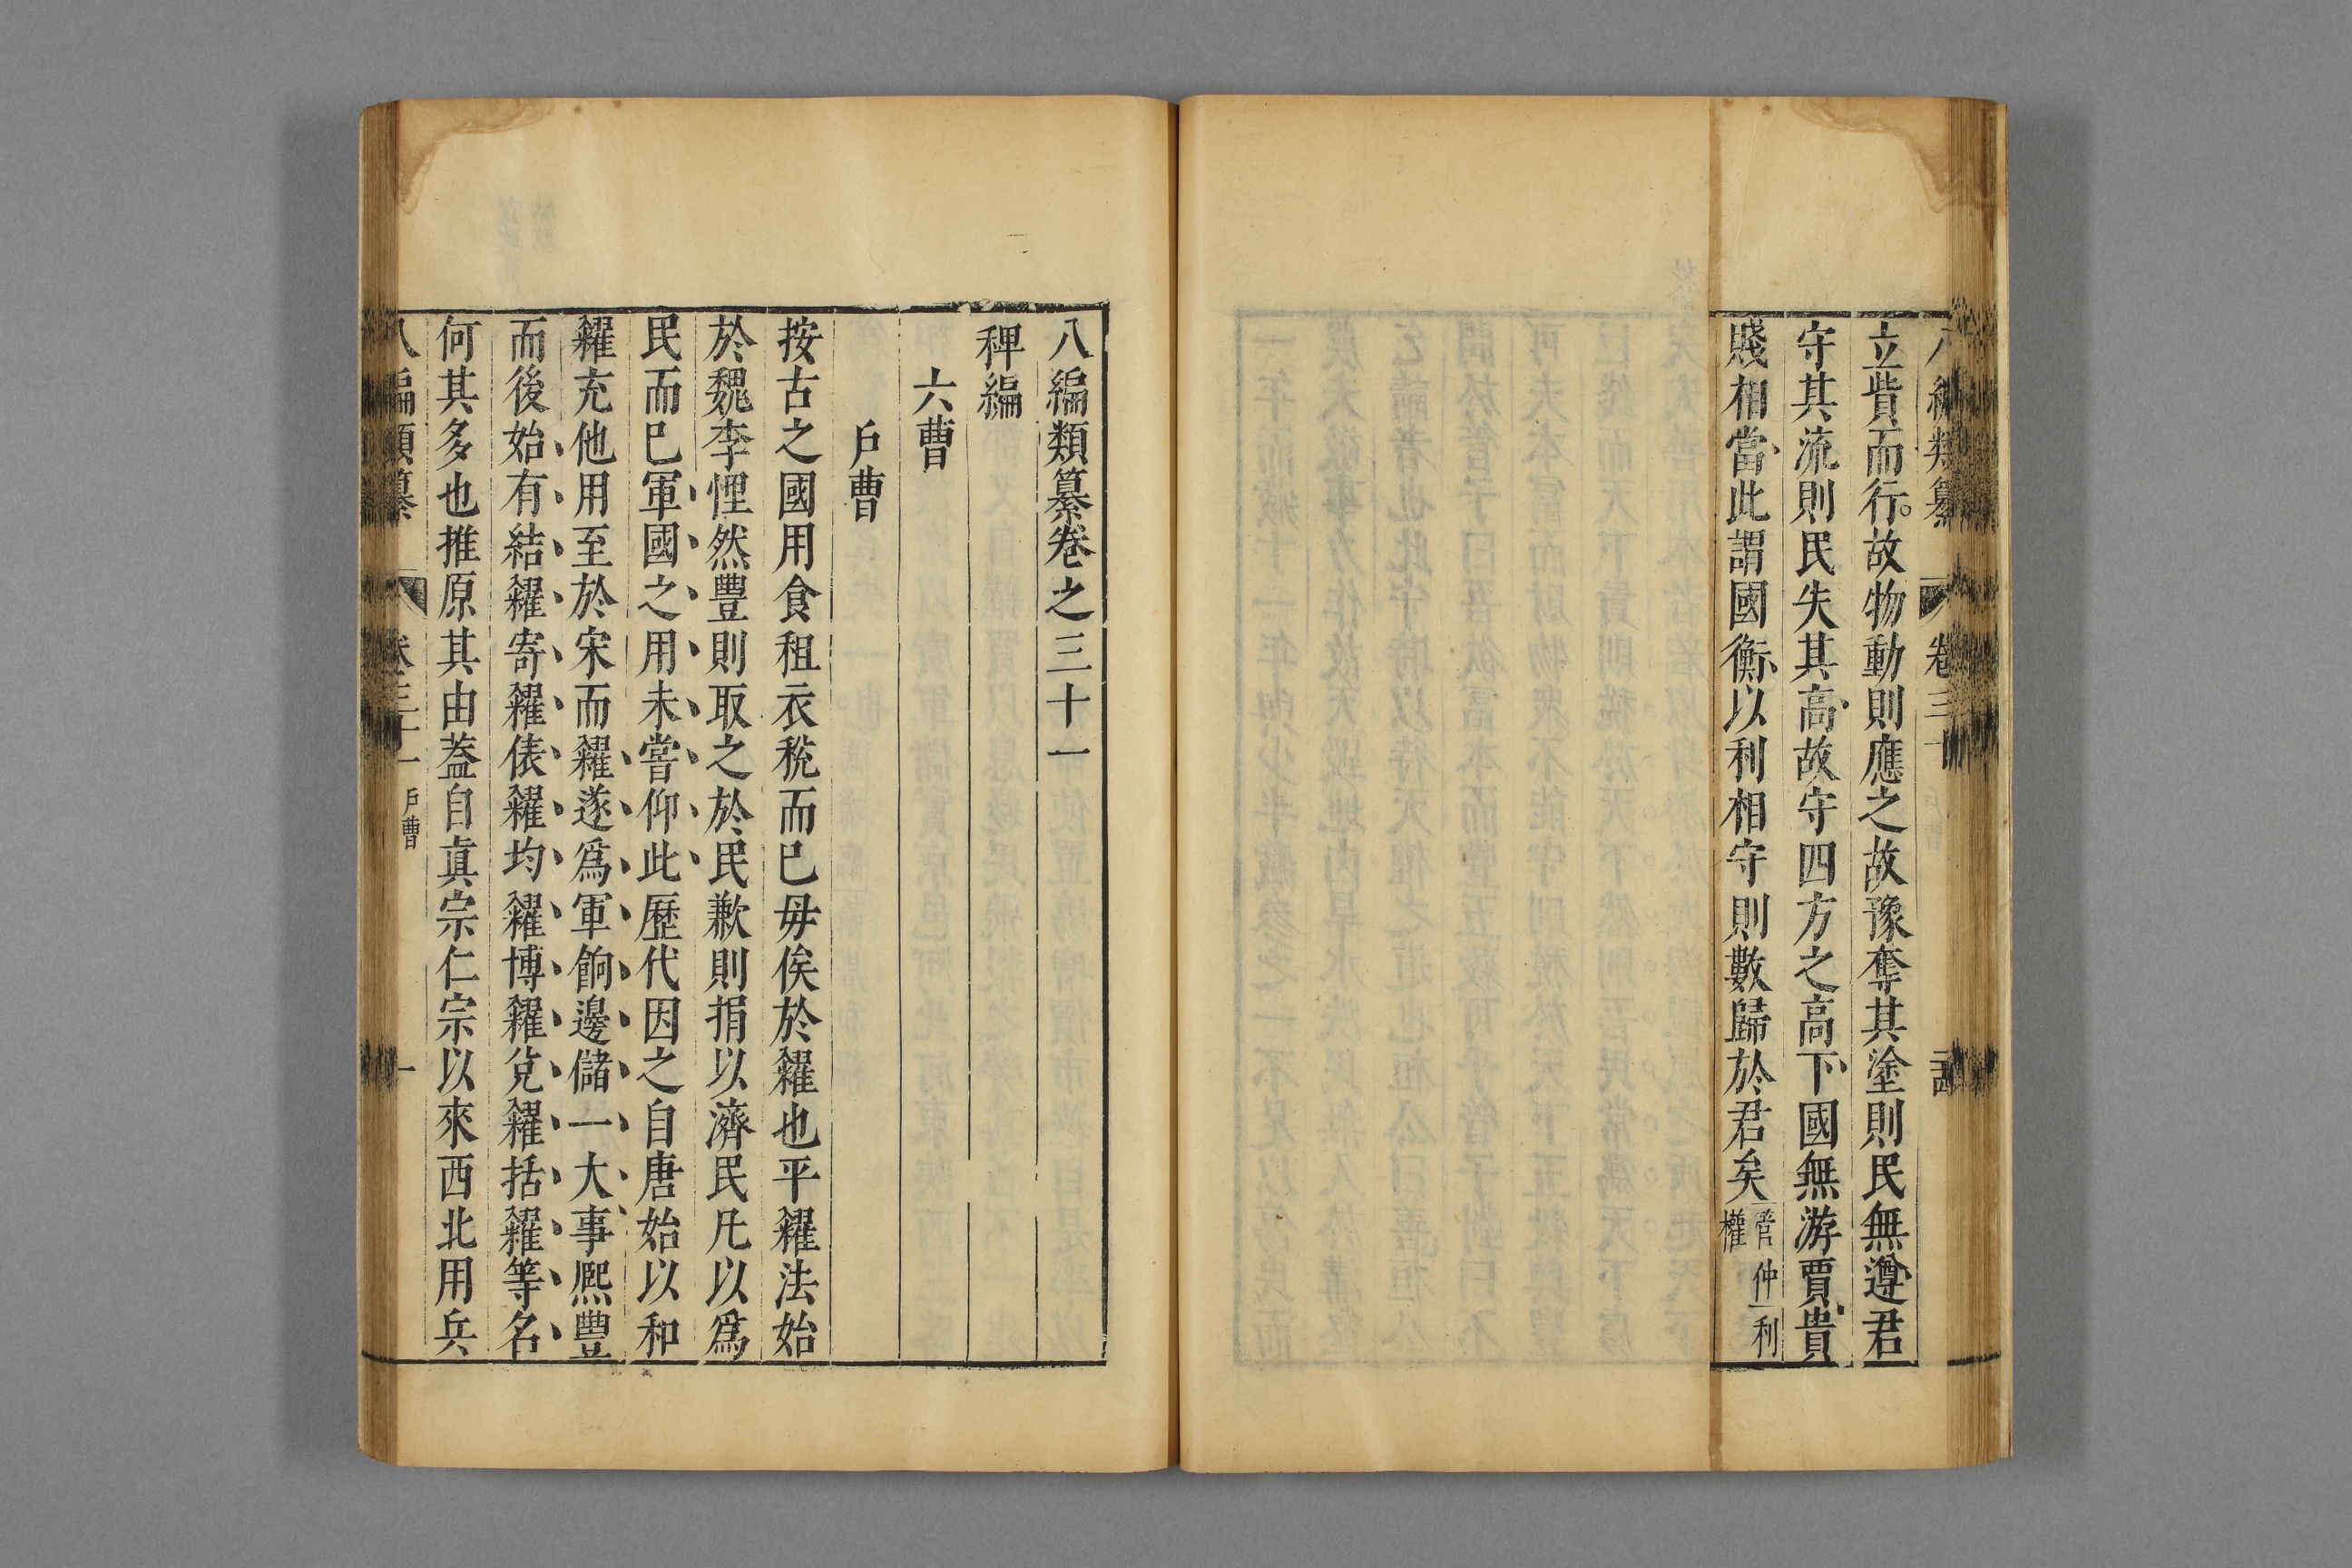 立貲而行故物動則應之故豫奪其塗則民無遵君
守其流則民失其高故守四方之高下國無游賈貴
賤相當此謂國衡以利相守則數歸於君矣管仲利權
八編類纂卷之三十一
稗編
六曹
戶曹
按古之國用食租衣稅而已毋俟於糴也平糴法始
於魏李悝然豐則取之於民歉則捐以濟民凡以爲
民而已軍國之用未嘗仰此歷代因之自唐始以和
糴充他用至於宋而糴遂爲軍餉邊儲一大事熈豐
而後始有結糴寄糴俵糴均糴博糴兌糴括糴等名
何其多也推原其由蓋自眞宗仁宗以來西北用兵
八編類纂 卷三十一 戶曹 一